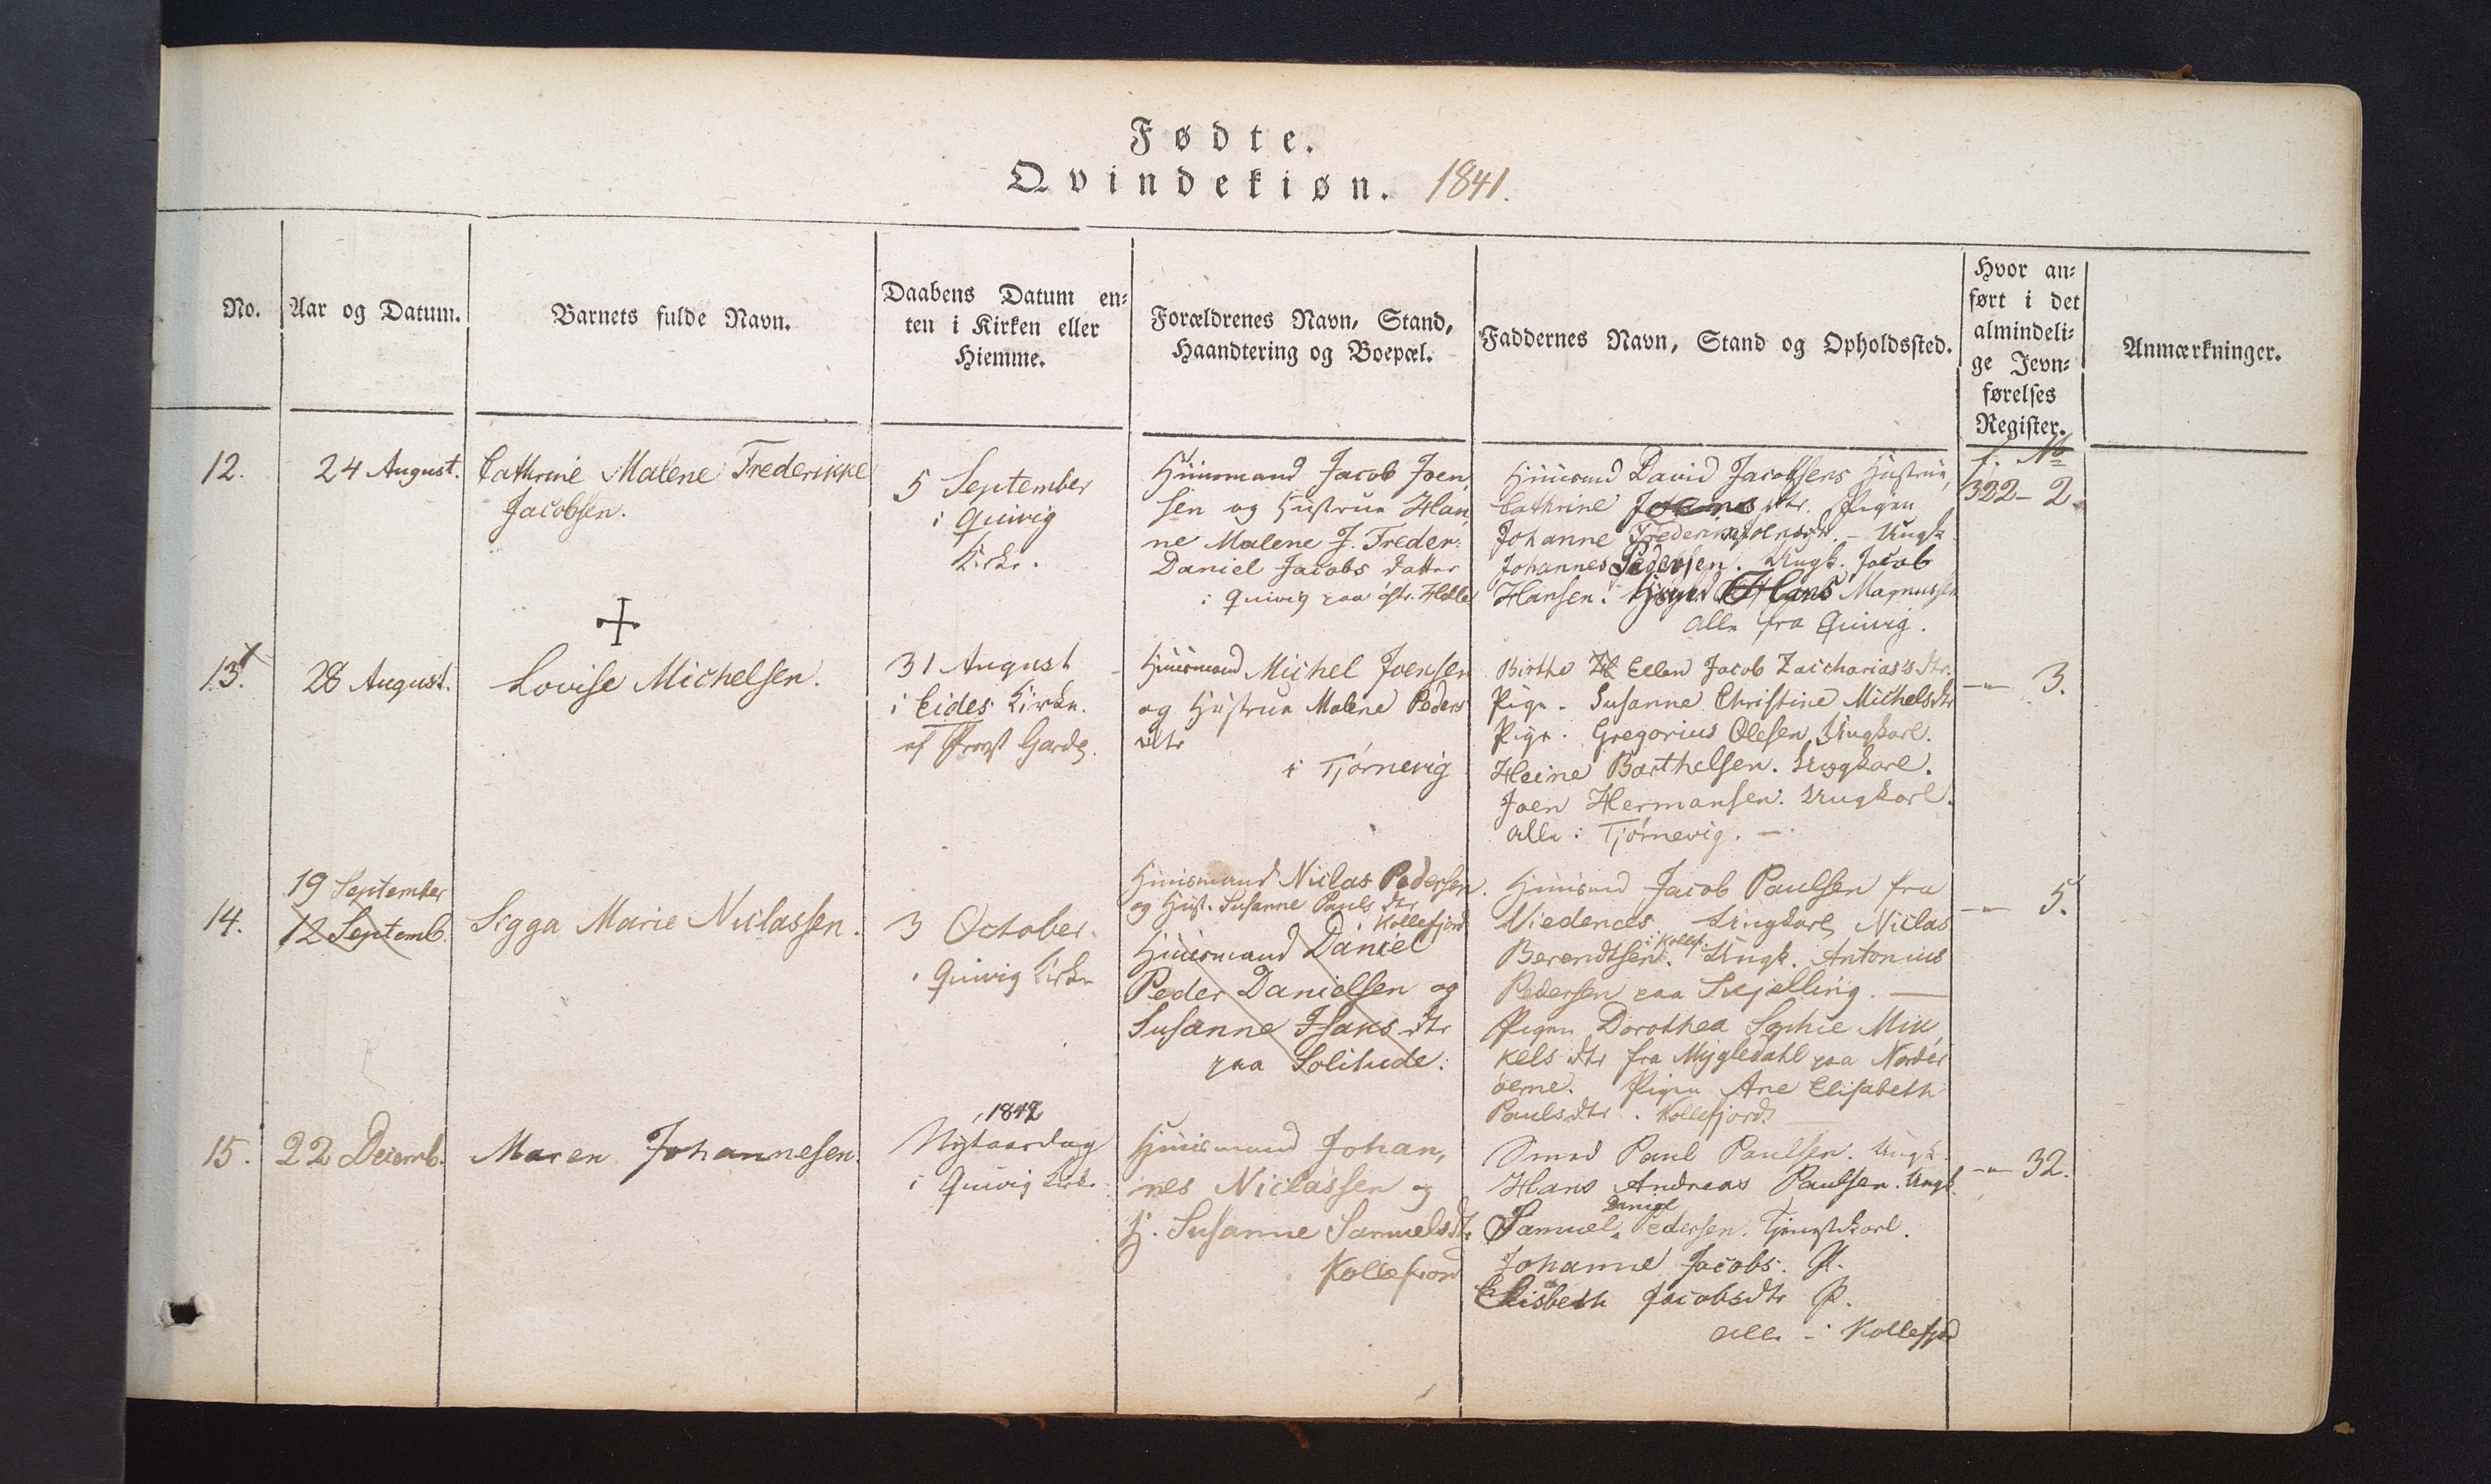 Fødte.
Qvindekiøn. 1841.
No.
Aar og Datum.
Barnets fulde Navn.
Daabens Datum en-
ten i Kirken eller
Hiemme.
Forældrenes Navn, Stand,
Haandtering og Boepæl.
Faddernes Navn, Stand og Opholdssted.
Hvor an-
ført i det
almindeli-
ge Jevn-
førelses
Register.
Anmærkninger.
12.
24 August.
Cathrine Malene Frederikke
Jacobsen.
5 September
i Quivig
Kirke.
Huusmand Jacob Joen,
sen og Hustrue Han,
ne Malene J. Freder:
Daniel Jacobs datter
i Quivig paa
Huusmd David Jacobsens Hustrue,
Cathrine dtr. Pigen
Johanne - Ungk.
Johannes Pedersen. Ungk. Jacob
Hansen. Hans Magnussen
alle fra Quivig.
f. No
322 - 2.
13.
28 August.
Lovise Michelsen.
31 August
i Eides Kirke.
af Provst
Huusmand Michel Joensen
og Hustrue Malene Peders
dtr
i Tjørnevig
Birthe Ellen Jacob Zaccharias's dtr.
Pige. Susanne Christine Michelsdtr
Pige. Gregorius Olesen Ungkarl.
Heine Barthelsen. Ungkarl.
Joen Hermansen. Ungkarl.
alle i Tjørnevig. -
-"- 3.
14.
19 September
12 Septemb.
Sigga Marie Niclassen.
3 October
i Quivig Kirke
Huusmand Niclas Pedersen.
og Hust. Susanne Pauls dtr
i Kollefjord
Huusmand Daniel
Peder Danielsen og
Susanne Isaks dtr
paa Solitude.
Huusmd Jacob Paulsen fra
Viedenees Ungkarl Niclas
Berendtsen i Kollef. Ungk. Antonius
Pedersen paa Sejalling. -
Pigen Dorothea Sophie Mik,
kels dtr fra Mygledahl paa Norder
øerne. Pigen Ane Elisabeth
Paulsdtr. Kollefjord
-"- 5.
15.
22 Decemb.
Maren Johannesen.
1842
Nytaarsdag
i Quivig Kirke
Huusmand Johan,
nes Niclassen og
H. Susanne Samuelsdtr
Kollefiord
Paul Paulsen. Ungk.
Hans Andreas Paulsen. Ungk.
Samuel Daniel Pedersen. Tjenestekarl.
Johanne Jacobs. P.
Elisbeth Jacobsdtr P.
alle i Kollefjord
-"- 32.